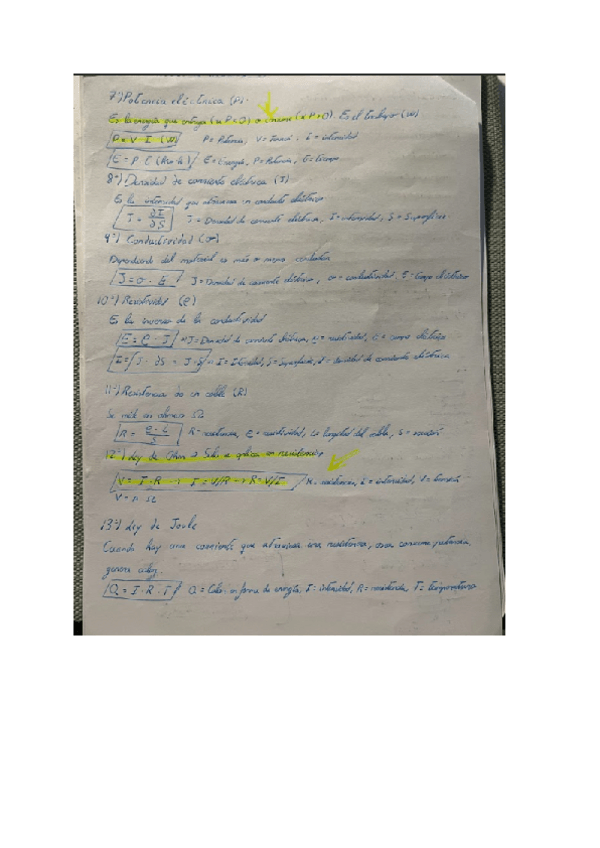 7º) Potencia eléctrica (P).
Es la energía que entrega (si P<0) o consume (si P>0). Es el trabajo (W)
P = V · I (W) P = Potencia, V = Tensión, I = intensidad
E = P · t (Kw·h) E = Energía, P = Potencia, t = tiempo
8º) Densidad de corriente eléctrica (J)
Es la intensidad que atraviesa un conductor eléctrico
J = ∂I/∂S J = Densidad de corriente eléctrica, I = intensidad, S = Superficie
9º) Conductividad (σ)
Dependiendo del material es más o menos conductor
J = σ · E J = Densidad de corriente eléctrica, σ = conductividad, E = Campo eléctrico
10º) Resistividad (ρ)
Es la inversa de la conductividad
E = ρ · J J = Densidad de corriente eléctrica, = resistividad, E = campo eléctrico
I = ∫J · ∂S = J · S I = Intensidad, S = Superficie, J = Densidad de corriente eléctrica
11º) Resistencia de un cable (R)
Se mide en ohmios Ω
R = ρ · L/S R = resistencia, ρ = resistividad, L = longitud del cable, S = sección
12º) Ley de Ohm → Sólo se aplica en resistencias
V = I · R → I = V/R → R = V/I R = resistencia, I = intensidad, V = tensión
13º) Ley de Joule
Cuando hay una corriente que atraviesa una resistencia, esa consume potencia,
genera calor.
Q = I · R · T Q = Calor en forma de energía, I = intensidad, R = resistencia, T = temperatura